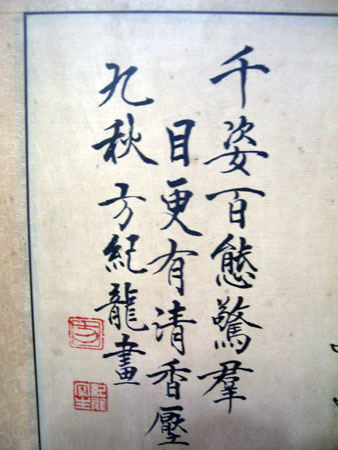 千姿百態驚羣
目更有清香壓
九秋方紀龍畫